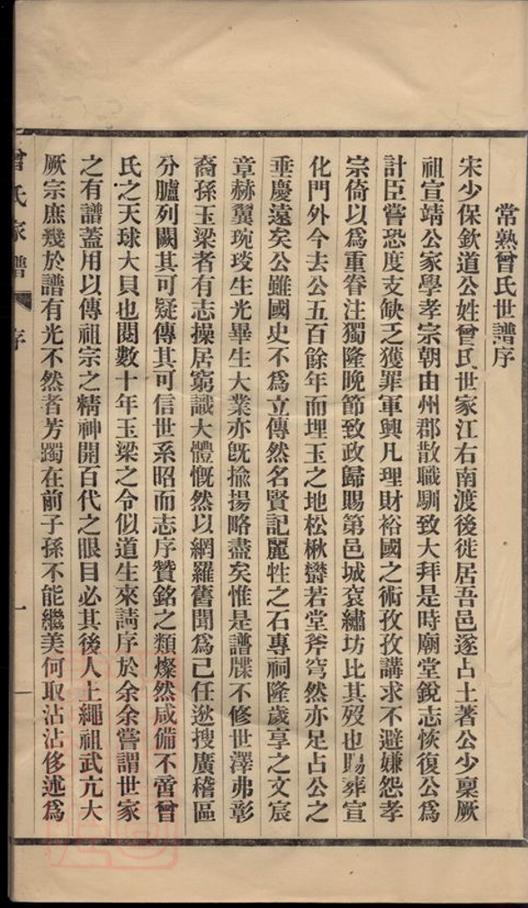 常熟曾氏世譜序
宋少保欽道公姓曾氏世家江右南渡後徙居吾邑遂占土著公少稟厥
祖宣靖公家學孝宗朝由州郡散職馴致大拜是時廟堂銳志恢復公爲
計臣嘗恐度支缺乏獲罪軍興凡理財裕國之術孜孜講求不避嫌怨孝
宗倚以爲重眷注獨隆晚節致政歸賜第邑城袞繡坊比其歿也賜葬宣
化門外今去公五百餘年而埋玉之地松楸鬱若堂斧穹然亦足占公之
垂慶遠矣公雖國史不爲立傳然名賢記麗牲之石專祠隆歲享之文宸
章赫翼琬琰生光畢生大業亦旣揄揚略盡矣惟是譜牒不修世澤弗彰
裔孫玉梁者有志操居窮識大體慨然以網羅舊聞爲己任逖搜廣稽區
分臚列闕其可疑傳其可信世系昭而志序贊銘之類燦然咸備不啻曾
氏之天球大貝也閱數十年玉梁之令似道生來請序於余余嘗謂世家
之有譜蓋用以傳祖宗之精神開百代之眼目必其後人上繩祖武亢大
厥宗庶幾於譜有光不然者芳躅在前子孫不能繼美何取沾沾侈述爲
曾氏家譜
序
一